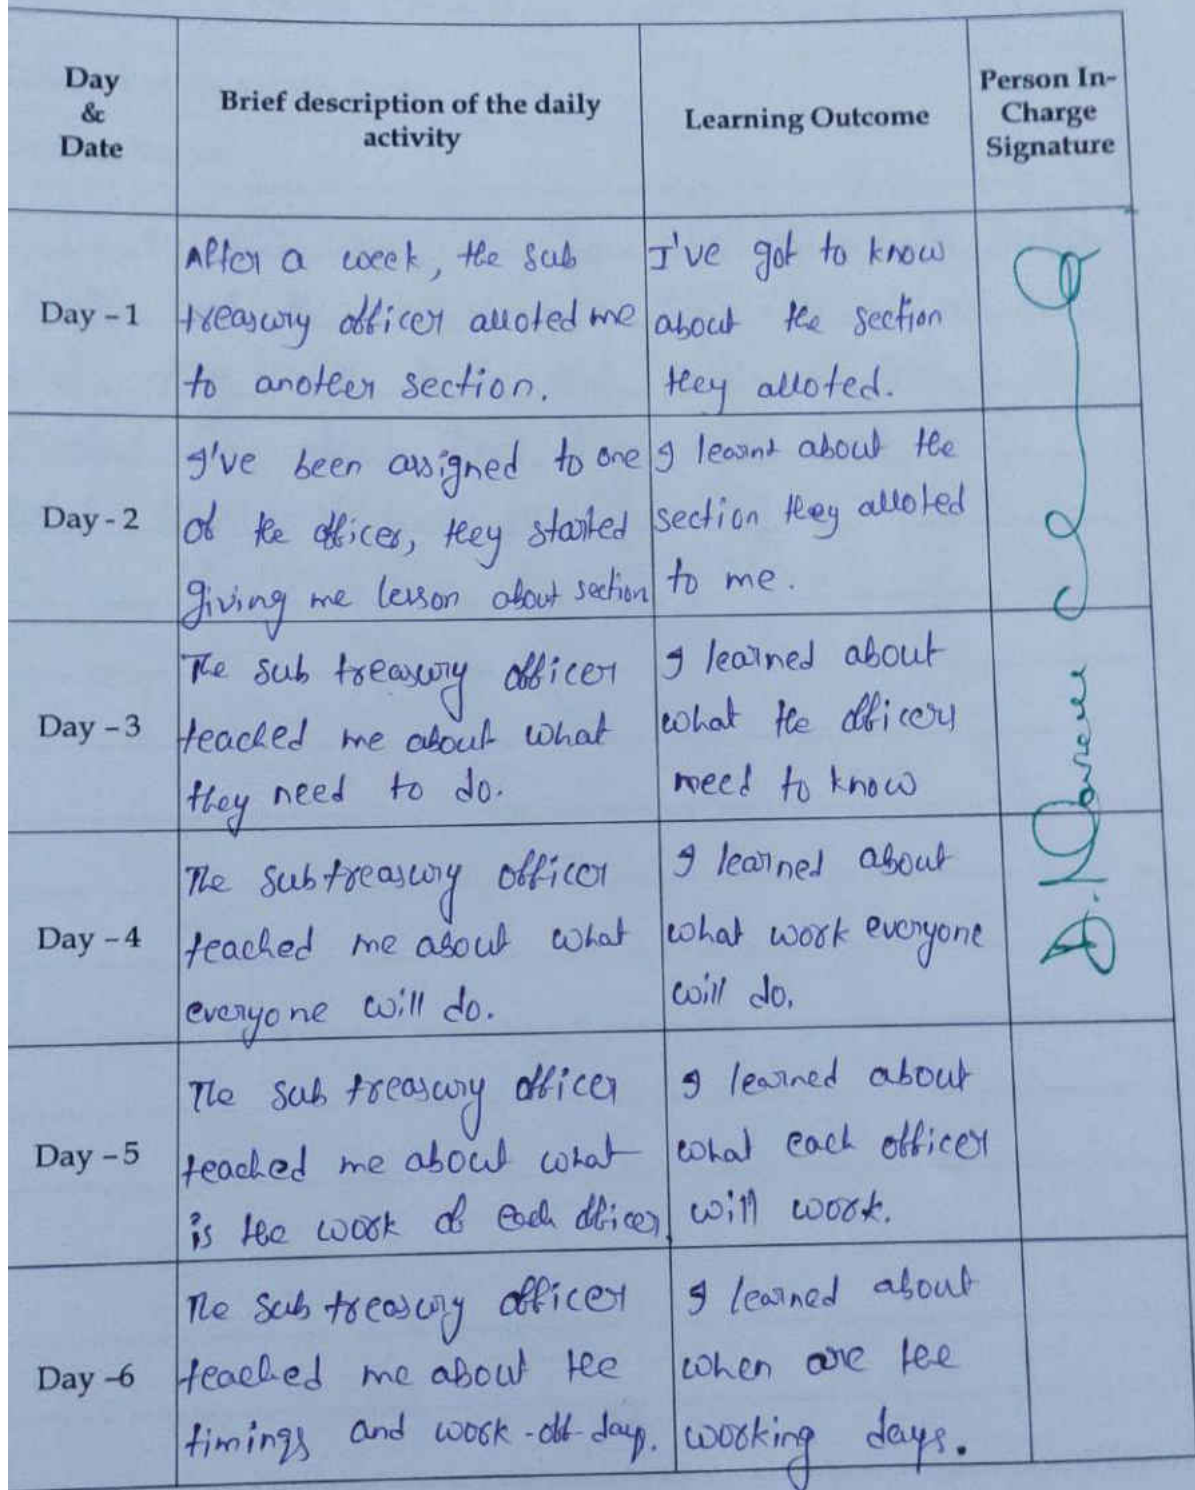 Day
&
Date
Brief description of the daily
activity
Learning Outcome
Person In-
Charge
Signature
Day - 1
After a week, the sub
treasury officer alloted me
to another section.
I've got to know
about the section
they alloted.
Day - 2
I've been assigned to one
of the officer, they started
giving me lesson about section
I learnt about the
section they alloted
to me.
Day - 3
The sub treasury officer
teached me about what
they need to do.
I learned about
what the officers
need to know
Day - 4
The sub treasury officer
teached me about what
everyone will do.
I learned about
what work everyone
will do.
Day - 5
The sub treasury officer
teached me about what
is the work of each officer.
I learned about
what each officer
will work.
Day - 6
The sub treasury officer
teached me about the
timings and work-off-days.
I learned about
when are the
working days.